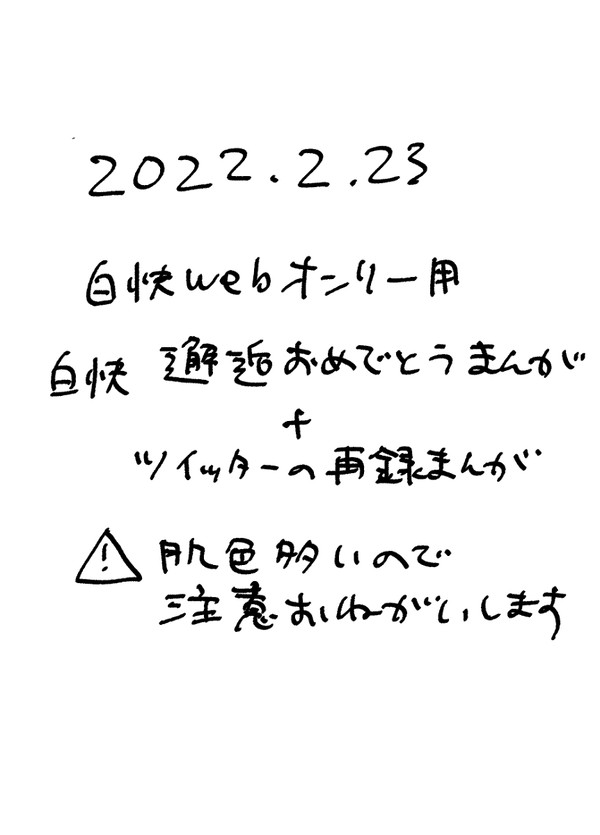 2022.2.23
白快webオンリー用
白快 邂逅おめでとうまんが
+
ツイッターの再録まんが
⚠ 肌色多いので
注意おねがいします